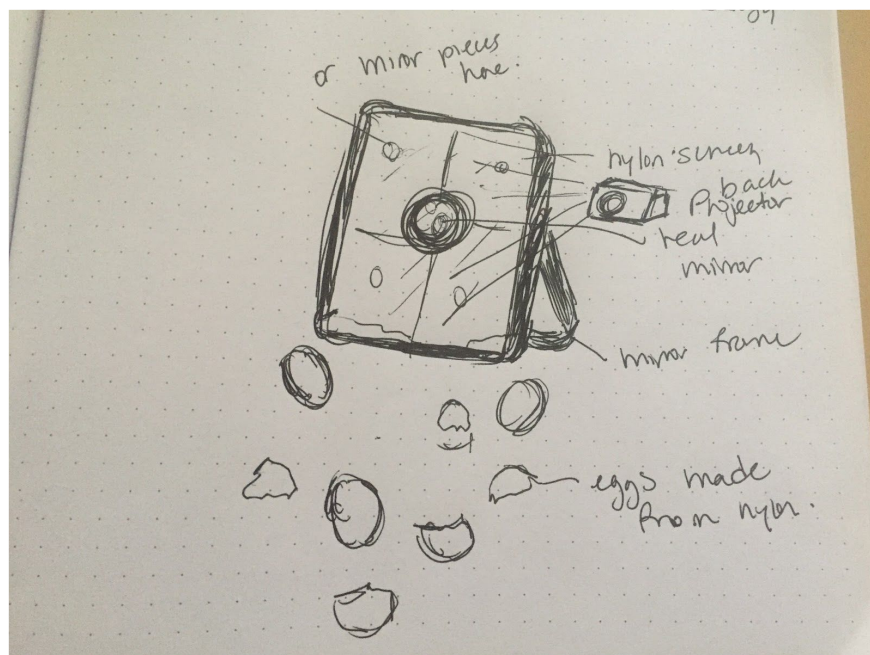 or miror pieces
here.
nylon screen
back
Projector
real
mirror
mirror frame
eggs made
from nylon.